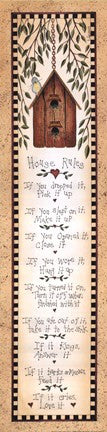 House Rules
If You dropped it,
Pick it up
If You slept on it,
Make it up
If You Opened it,
Close it
If You Wore it,
Hang it up
If You turned it on,
Turn it off when
finished with it
If You ate out of it,
take it to the sink
If it Rings,
Answer it
If it barks or meows,
feed it
If it cries,
Love it